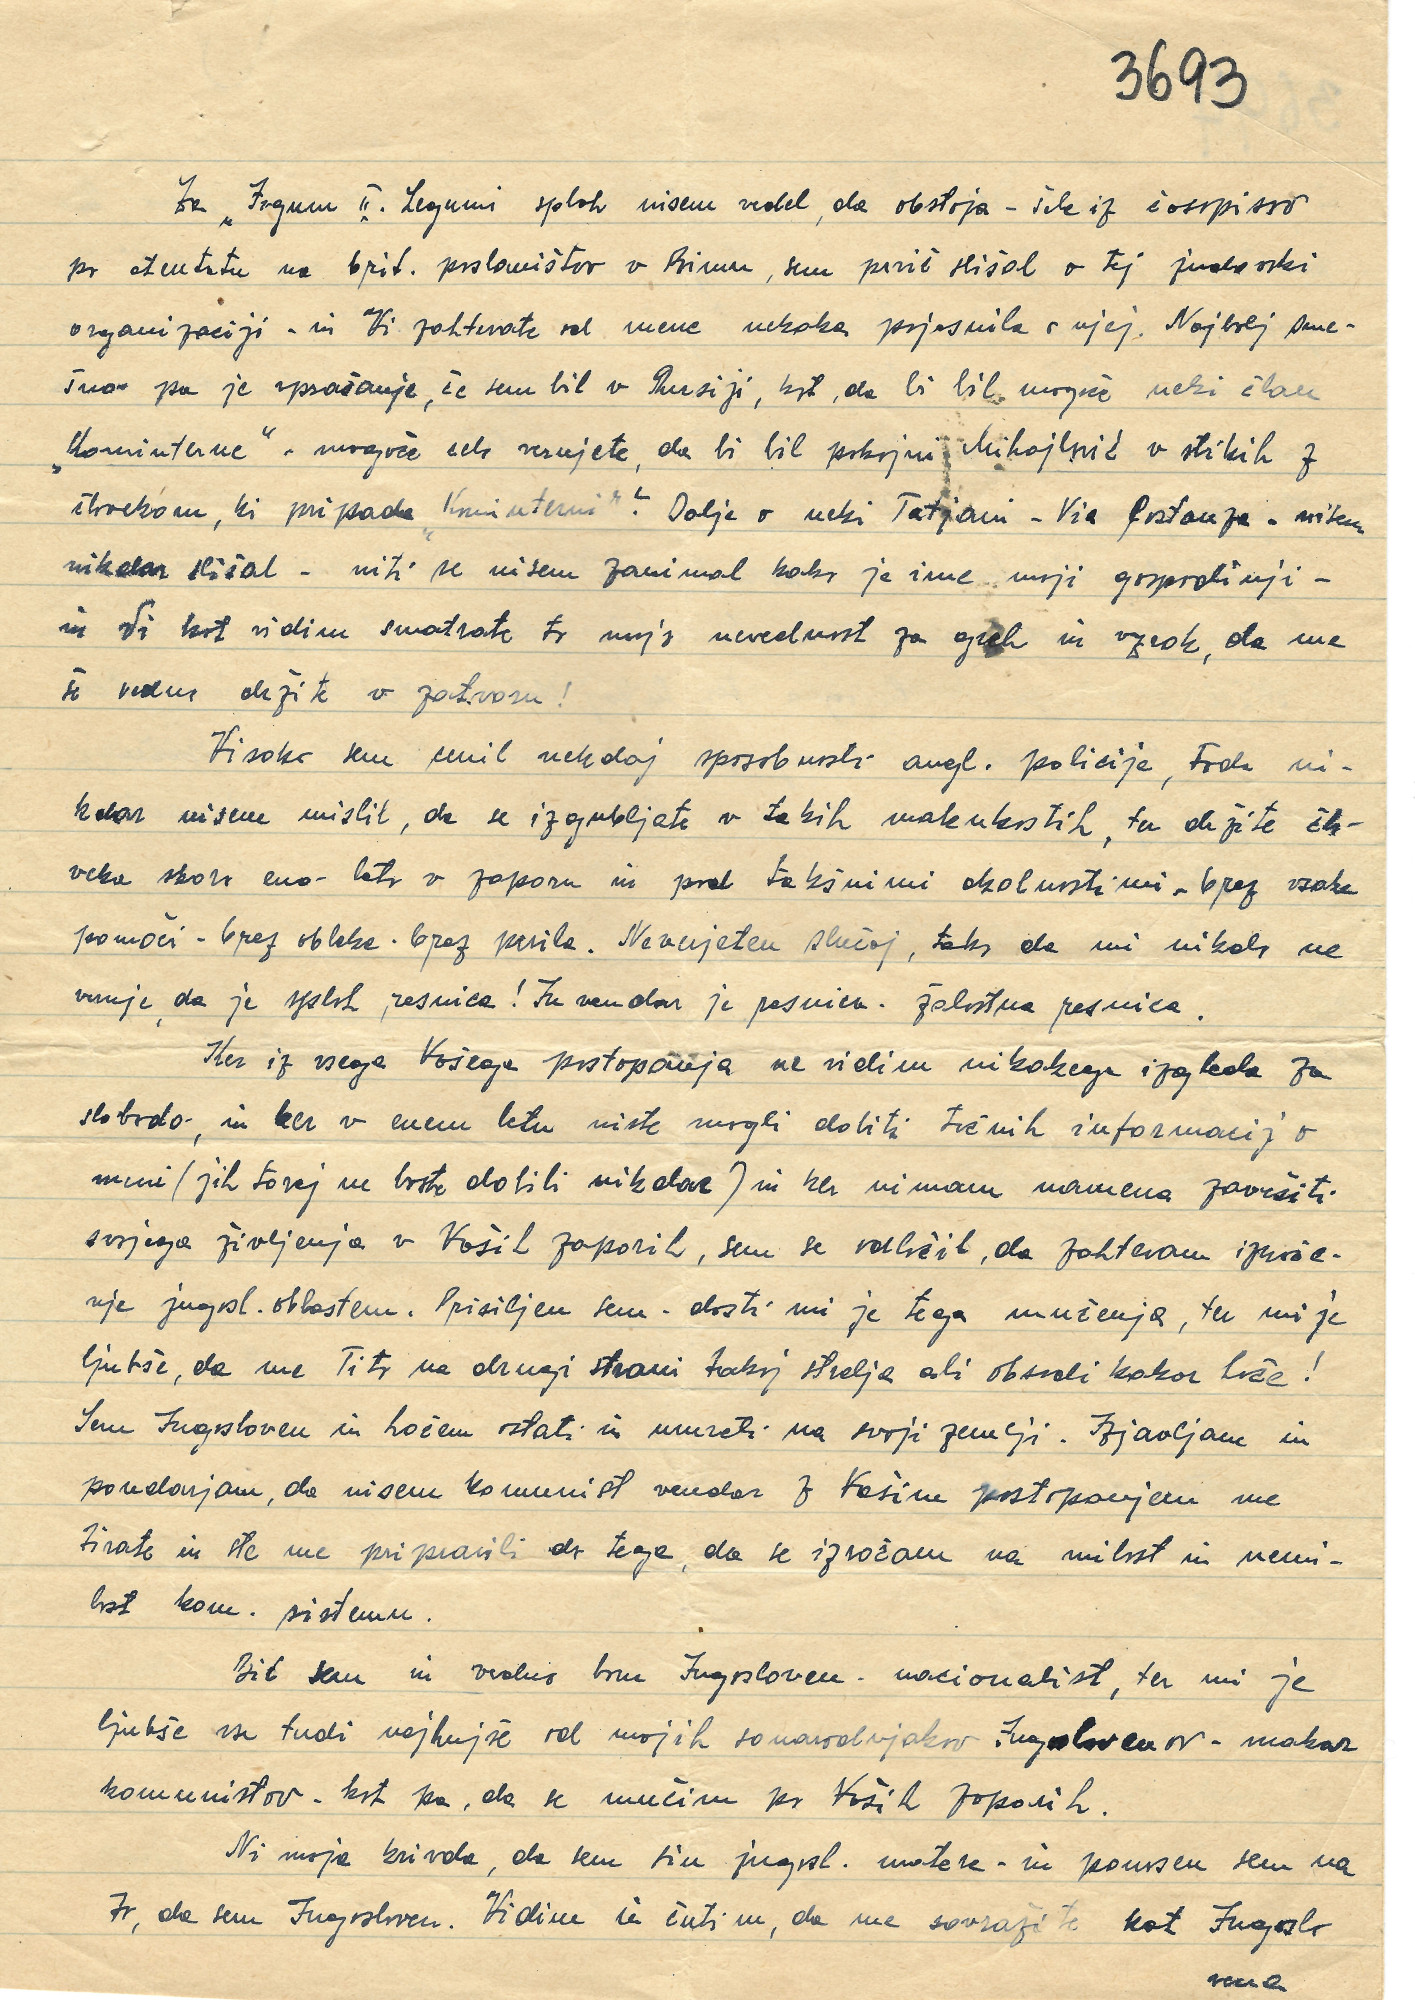 3693
Za „Irgum II. Legumi sploh nisem vedel, da obstoja - šele iz časopisov
po atentatu na brit. poslaništvo v Rimu, sem prvič slišal o tej judovski
organizaciji - in Vi zahtevate od mene nekaka pojasnila o njej. Najbolj sme-
šno pa je vprašanje, če sem bil v Rusiji, kot, da bi bil mogoče neki član
„Kominterne" - mogoče celo verujete, da bi bil pokojni Mihajlović v stikih z
človekom, ki pripada „Kominterni"? Dalje o neki Tatjani - Via Costanza - nisem
nikdar slišal - niti se nisem zanimal kako je ime moji gospodinji -
in Vi kot vidim smatrate to mojo nevednost za greh in vzrok, da me
še vedno držite v zatvoru!
Visoko sem cenil nekdaj sposobnosti angl. policije, toda ni-
kdar nisem mislil, da se izgubljate v takih malenkostih, ter držite člo-
veka skoro eno leto v zaporu in pod takšnimi okolnostimi - brez vsake
pomoči - brez obleke - brez perila. Neverjeten slučaj, tako da mi nikdo ne
veruje, da je sploh resnica! In vendar je resnica - žalostna resnica.
Ker iz vsega Vašega postopanja ne vidim nikakega izgleda za
slobodo, in ker v enem letu niste mogli dobiti točnih informacij o
meni (jih torej ne boste dobili nikdar) in ker nimam namena završiti
svojega življenja v Vaših zaporih, sem se odločil, da zahtevam izroče-
nje jugosl. oblastem. Prisiljen sem - dosti mi je tega mučenja, ter mi je
ljubše, da me Tito na drugi strani takoj strelja ali obsodi kakor hoče!
Sem Jugosloven in hočem ostati in umreti na svoji zemlji. Izjavljam in
poudarjam, da nisem komunist vendar z Vašim postopanjem me
tirate in ste me pripravili do tega, da se izročam na milost in nemi-
lost kom. sistemu.
Bil sem in vedno bom Jugosloven - nacionalist, ter mi je
ljubše vse tudi najhujše od mojih sonarodnjakov Jugoslovenov - makar
komunistov - kot pa, da se mučim po Vaših zaporih.
Ni moja krivda, da sem sin jugosl. matere - in ponosen sem na
to, da sem Jugosloven. Vidim in čutim, da me sovražite kot Jugoslo
vena